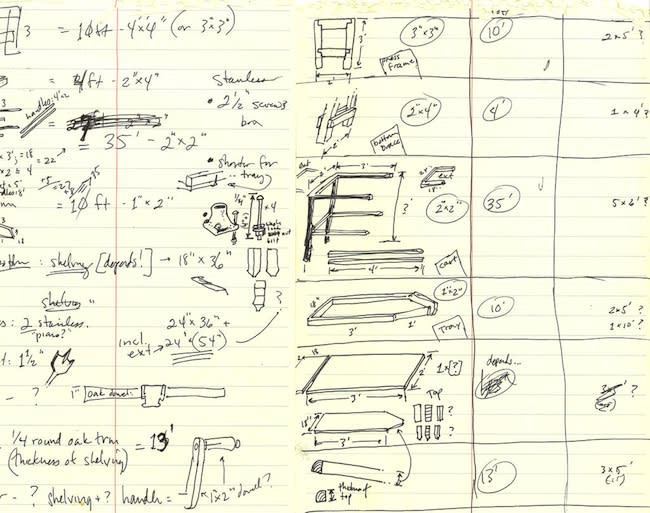 3 = 10 ft - 4"x4" (or 3"x3")
= 4ft - 2"x4"
handles: 4'x2
= 35' - 2"x2"
x 3'; = 18
= 22
= 10 ft - 1"x2"
stainless
• 2 1/2" screws
box
• shorter for
tray
x 4
: shelving [depends!] → 18"x36"
shelving"
s: 2 stainless.
"piano?"
24"x36" +
incl. 24" (54")
ext
?
t: 1 1/2"
- ?
1" oak dowel
1/4 round oak trim = 13'
(thickness of shelving)
- ? shelving + ? handle = 1"x2" dowel?
3"x3"
10'
2x5' ?
3'
2'
press
frame
2"x4"
4'
1x4' ?
2'
bottom
brace
3'
ext
2"x2"
35'
5x6' ?
4'
cart
1"x2"
10'
2x5' ?
1x10' ?
18"
3'
1'
Tray
18
1x[?]
depends...
2'
3'
Top
3x5'
?
18"
3'
?
?
13'
3x5'
thickness of
top